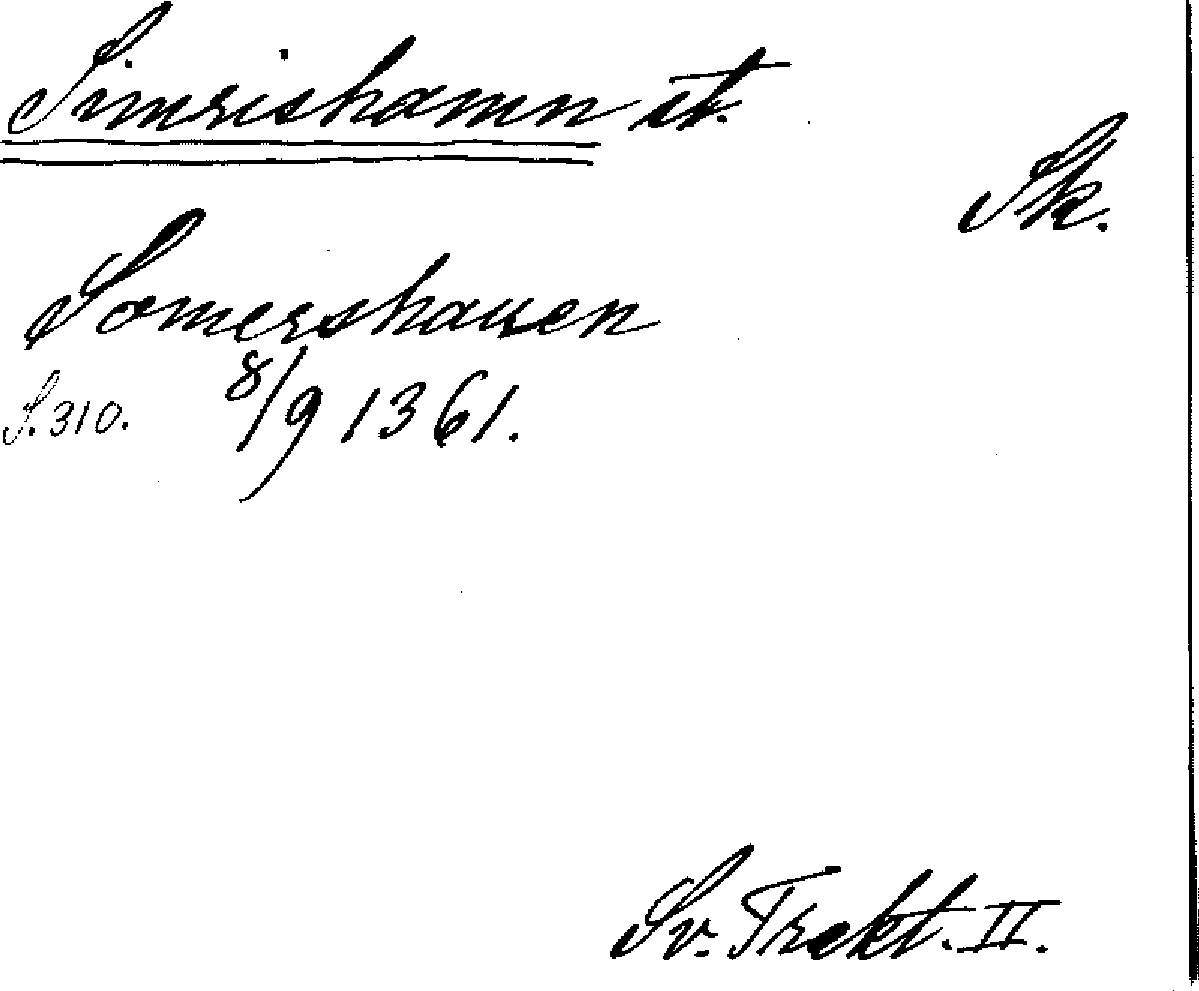 Simrishamn st.
Sk.
Somershauen
S. 310. 8/9 1361.
Sv. Trakt. II.